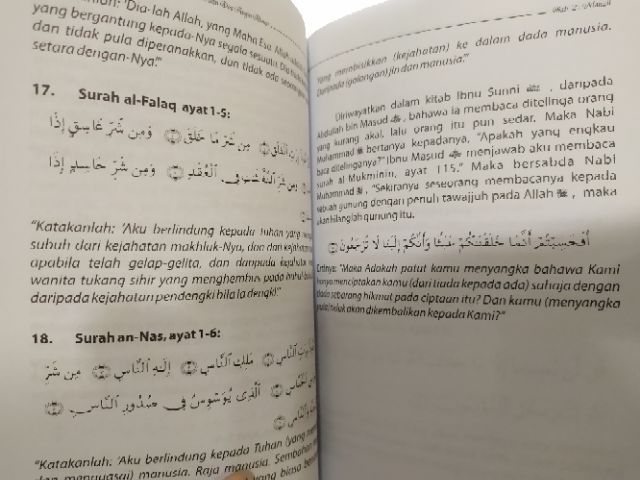 "Dia-lah Allah, yang Maha Esa. Allah
yang bergantung kepada-Nya segala sesuatu. Dia
dan tidak pula diperanakkan, dan tidak ada
setara dengan-Nya."
17. Surah al-Falaq ayat 1-5:
مِن شَرِّ مَا خَلَقَ ۝ وَمِن شَرِّ غَاسِقٍ إِذَا
وَمِن شَرِّ ٱلنَّفَّـٰثَـٰتِ فِى ٱلْعُقَدِ ۝ وَمِن شَرِّ حَاسِدٍ إِذَا
"Katakanlah: 'Aku berlindung kepada Tuhan yang
subuh dari kejahatan makhluk-Nya, dan dari kejahatan
apabila telah gelap-gelita, dan daripada
wanita tukang sihir yang menghembus pada
daripada kejahatan pendengki bila ia dengki."
18. Surah an-Nas, ayat 1-6:
ٱلنَّاسِ ۝ مَلِكِ ٱلنَّاسِ ۝ إِلَـٰهِ ٱلنَّاسِ ۝ مِن شَرِّ
ٱلَّذِى يُوَسْوِسُ فِى صُدُورِ ٱلنَّاسِ ۝
"Katakanlah: 'Aku berlindung kepada Tuhan (yang
manusia. Raja manusia. Sembahan
yang biasa
yang membisikkan (kejahatan) ke dalam dada manusia.
Daripada (golongan) jin dan manusia."
Diriwayatkan dalam kitab Ibnu Sunni, daripada
Abdullah bin Masud, bahawa ia membaca ditelinga orang
yang kurang akal, lalu orang itu pun sedar. Maka Nabi
Muhammad ﷺ bertanya kepadanya, "Apakah yang engkau
baca ditelinganya?" Ibnu Masud menjawab aku membaca
surah al-Mukminin, ayat 115." Maka bersabda Nabi
Muhammad ﷺ, "Sekiranya seseorang membacanya kepada
sebuah gunung dengan penuh tawajjuh pada Allah, maka
akan hilanglah gunung itu.
أَفَحَسِبْتُمْ أَنَّمَا خَلَقْنَـٰكُمْ عَبَثًا وَأَنَّكُمْ إِلَيْنَا لَا تُرْجَعُونَ ۝
Ertinya: "Maka Adakah patut kamu menyangka bahawa Kami
hanya menciptakan kamu (dari tiada kepada ada) sahaja dengan
tiada sebarang hikmat pada ciptaan itu? Dan kamu (menyangka
pula) tidak akan dikembalikan kepada Kami?"